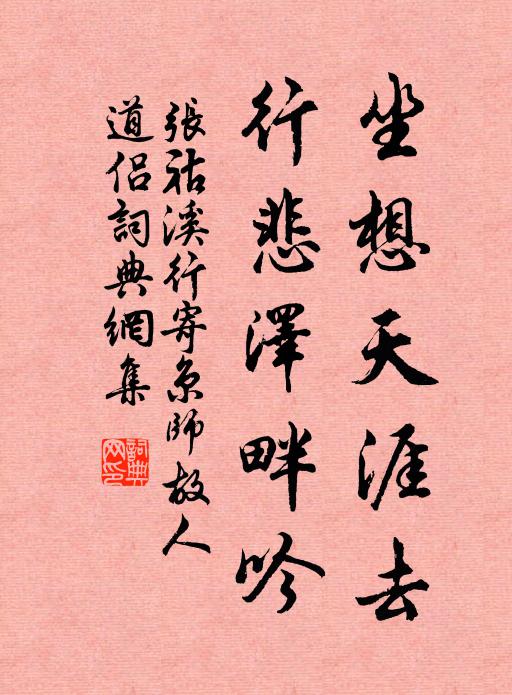 坐想天涯去
行悲澤畔吟
張祜溪行寄京師故人
道侶詞典網集
詞典
网印